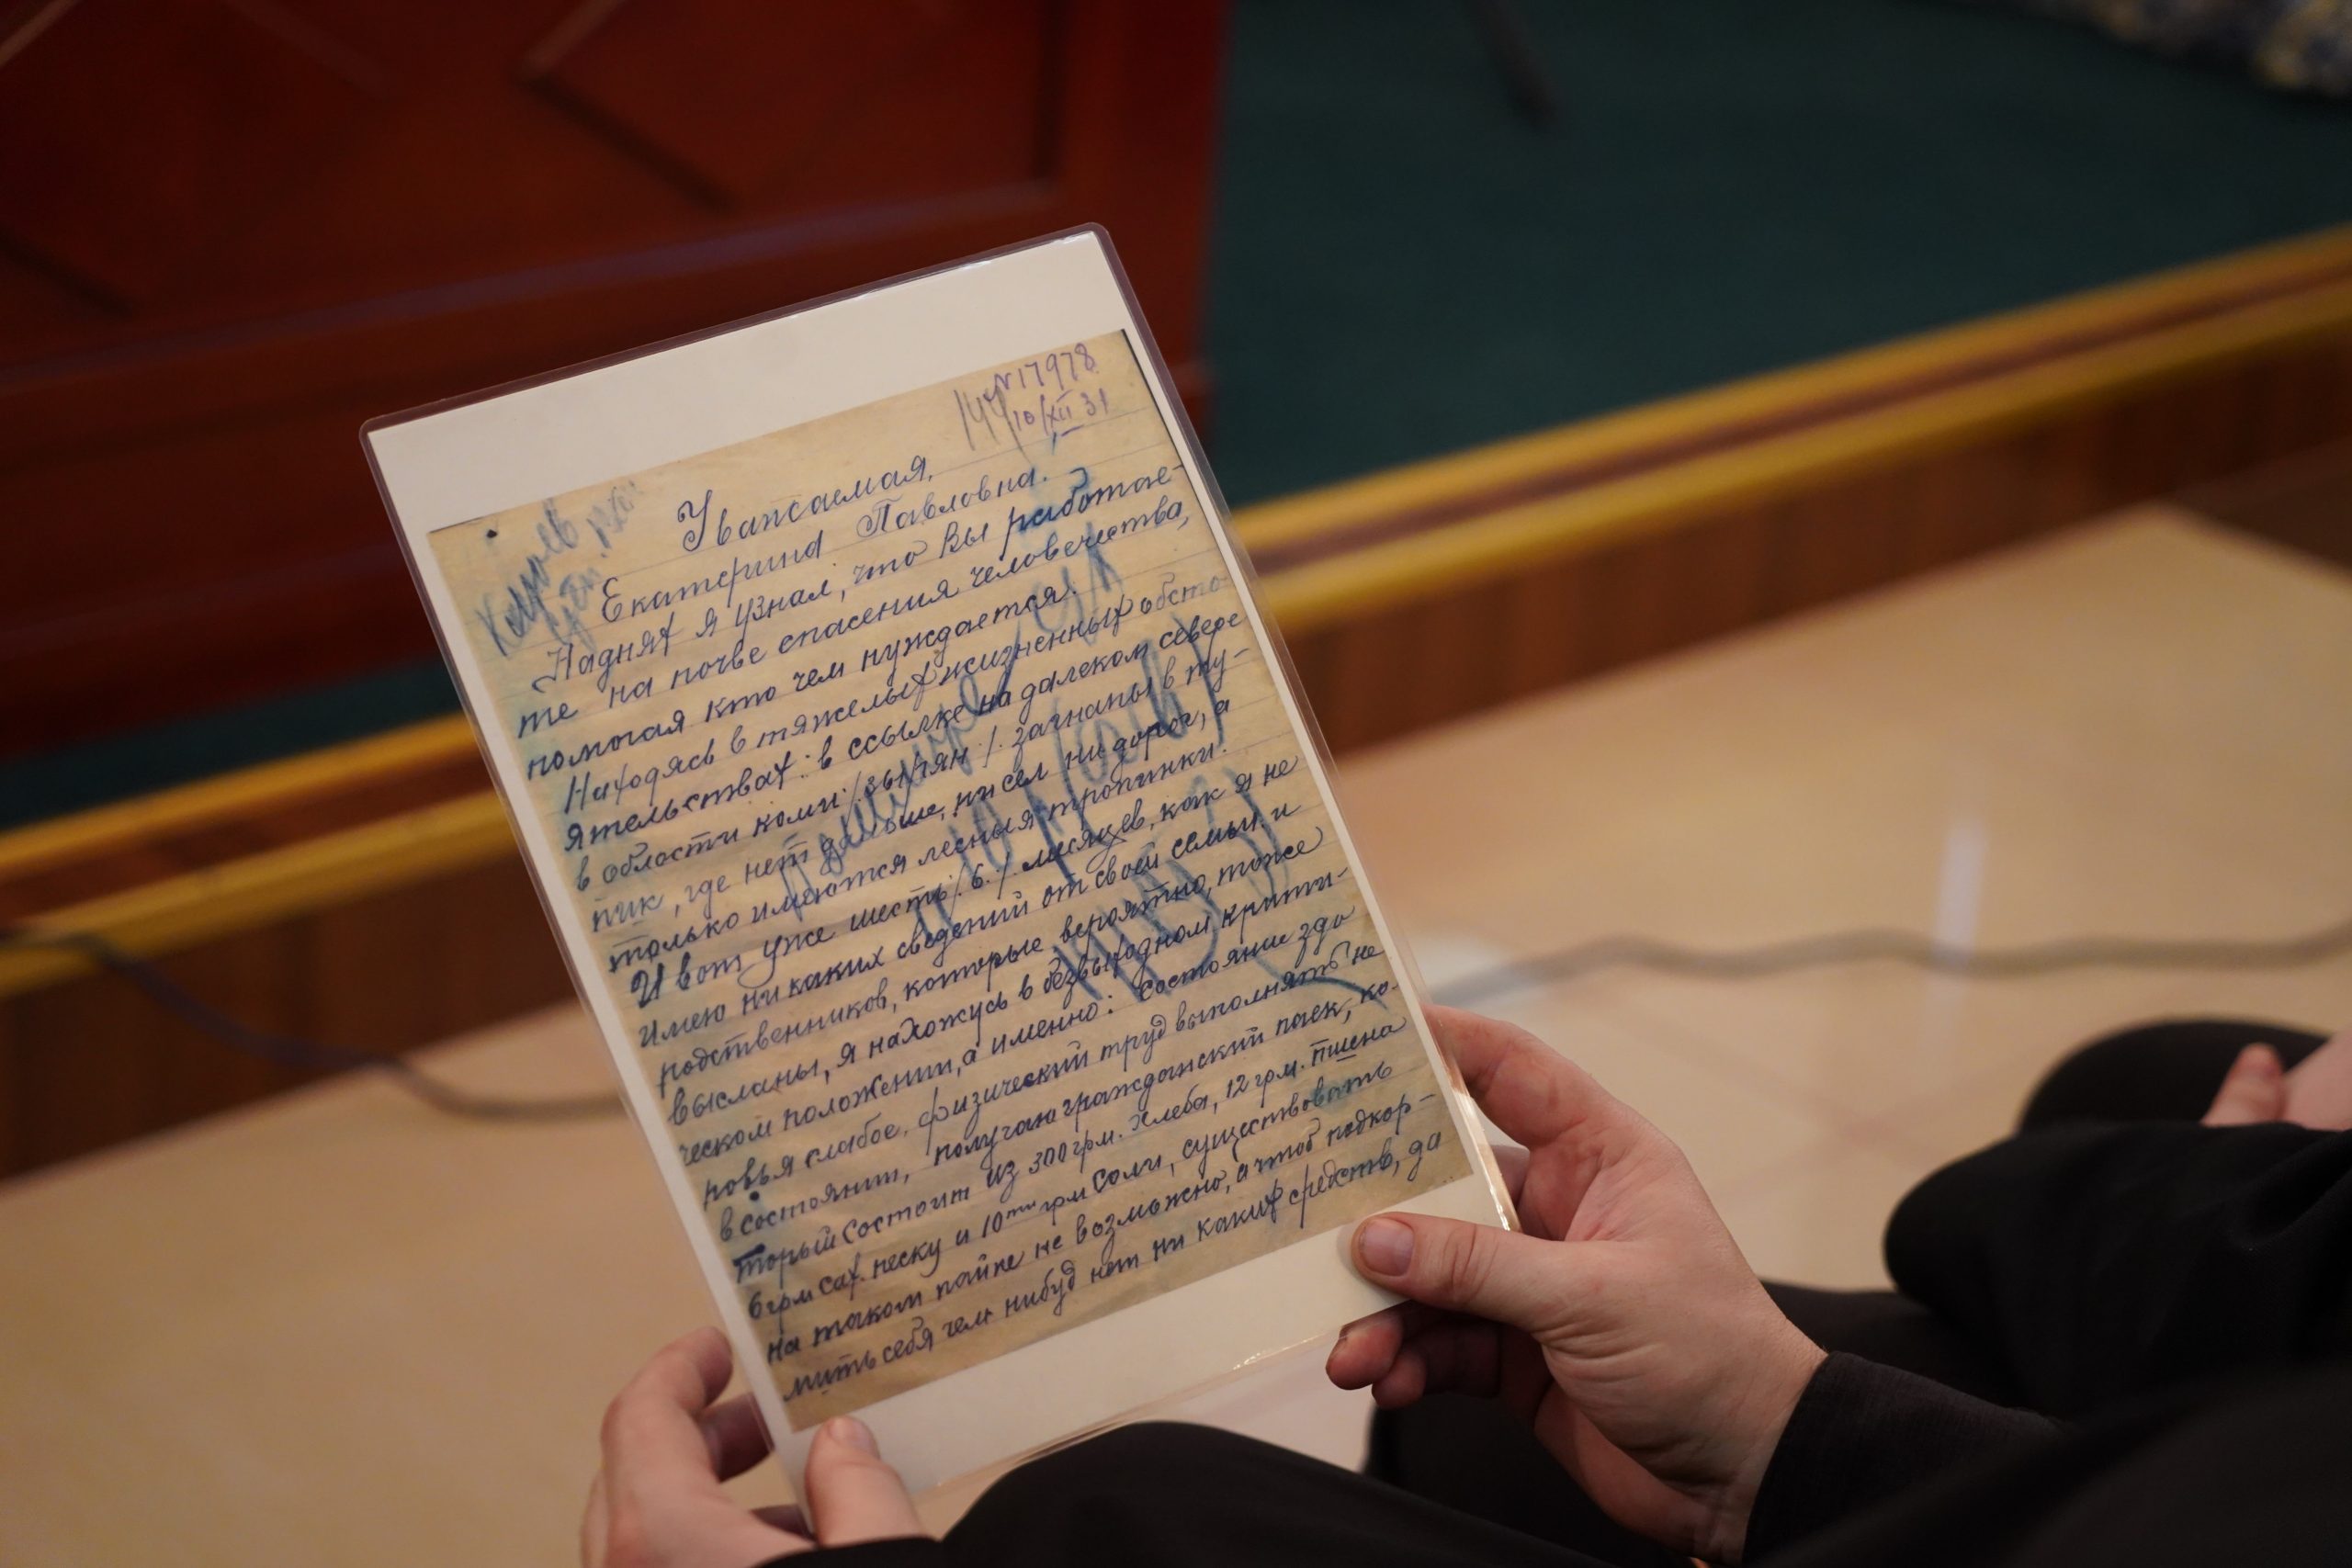 N17978
144 10/XII 31
Уважаемая,
Екатерина Павловна.
Наднях я узнал, что Вы работае-
те на почве спасения человечества,
помогая кто чем нуждается.
Находясь в тяжелых жизненных обсто-
ятельствах: в ссылке на далеком севере
в области коми /зырян/ загнаны в ту-
пик, где нет дальше, ни сел ни дорог, а
только имеются лесныя тропинки.
И вот уже шесть /6/ месяцев, как я не
имею ни каких сведений от своей семьи и
родственников, которые вероятно, тоже
высланы, я нахожусь в безвыходном крити-
ческом положении, а именно: состояние здо
ровья слабое, физический труд выполнять не
в состоянии, получаю гражданский паек, ко-
торый состоит из 300 грм. хлеба, 12 грм. пшена
6 грм сах. песку и 10ти грм соли, существовать
на таком пайке не возможно, а чтоб подкор-
мить себя чем нибуд нет ни каких средств, да